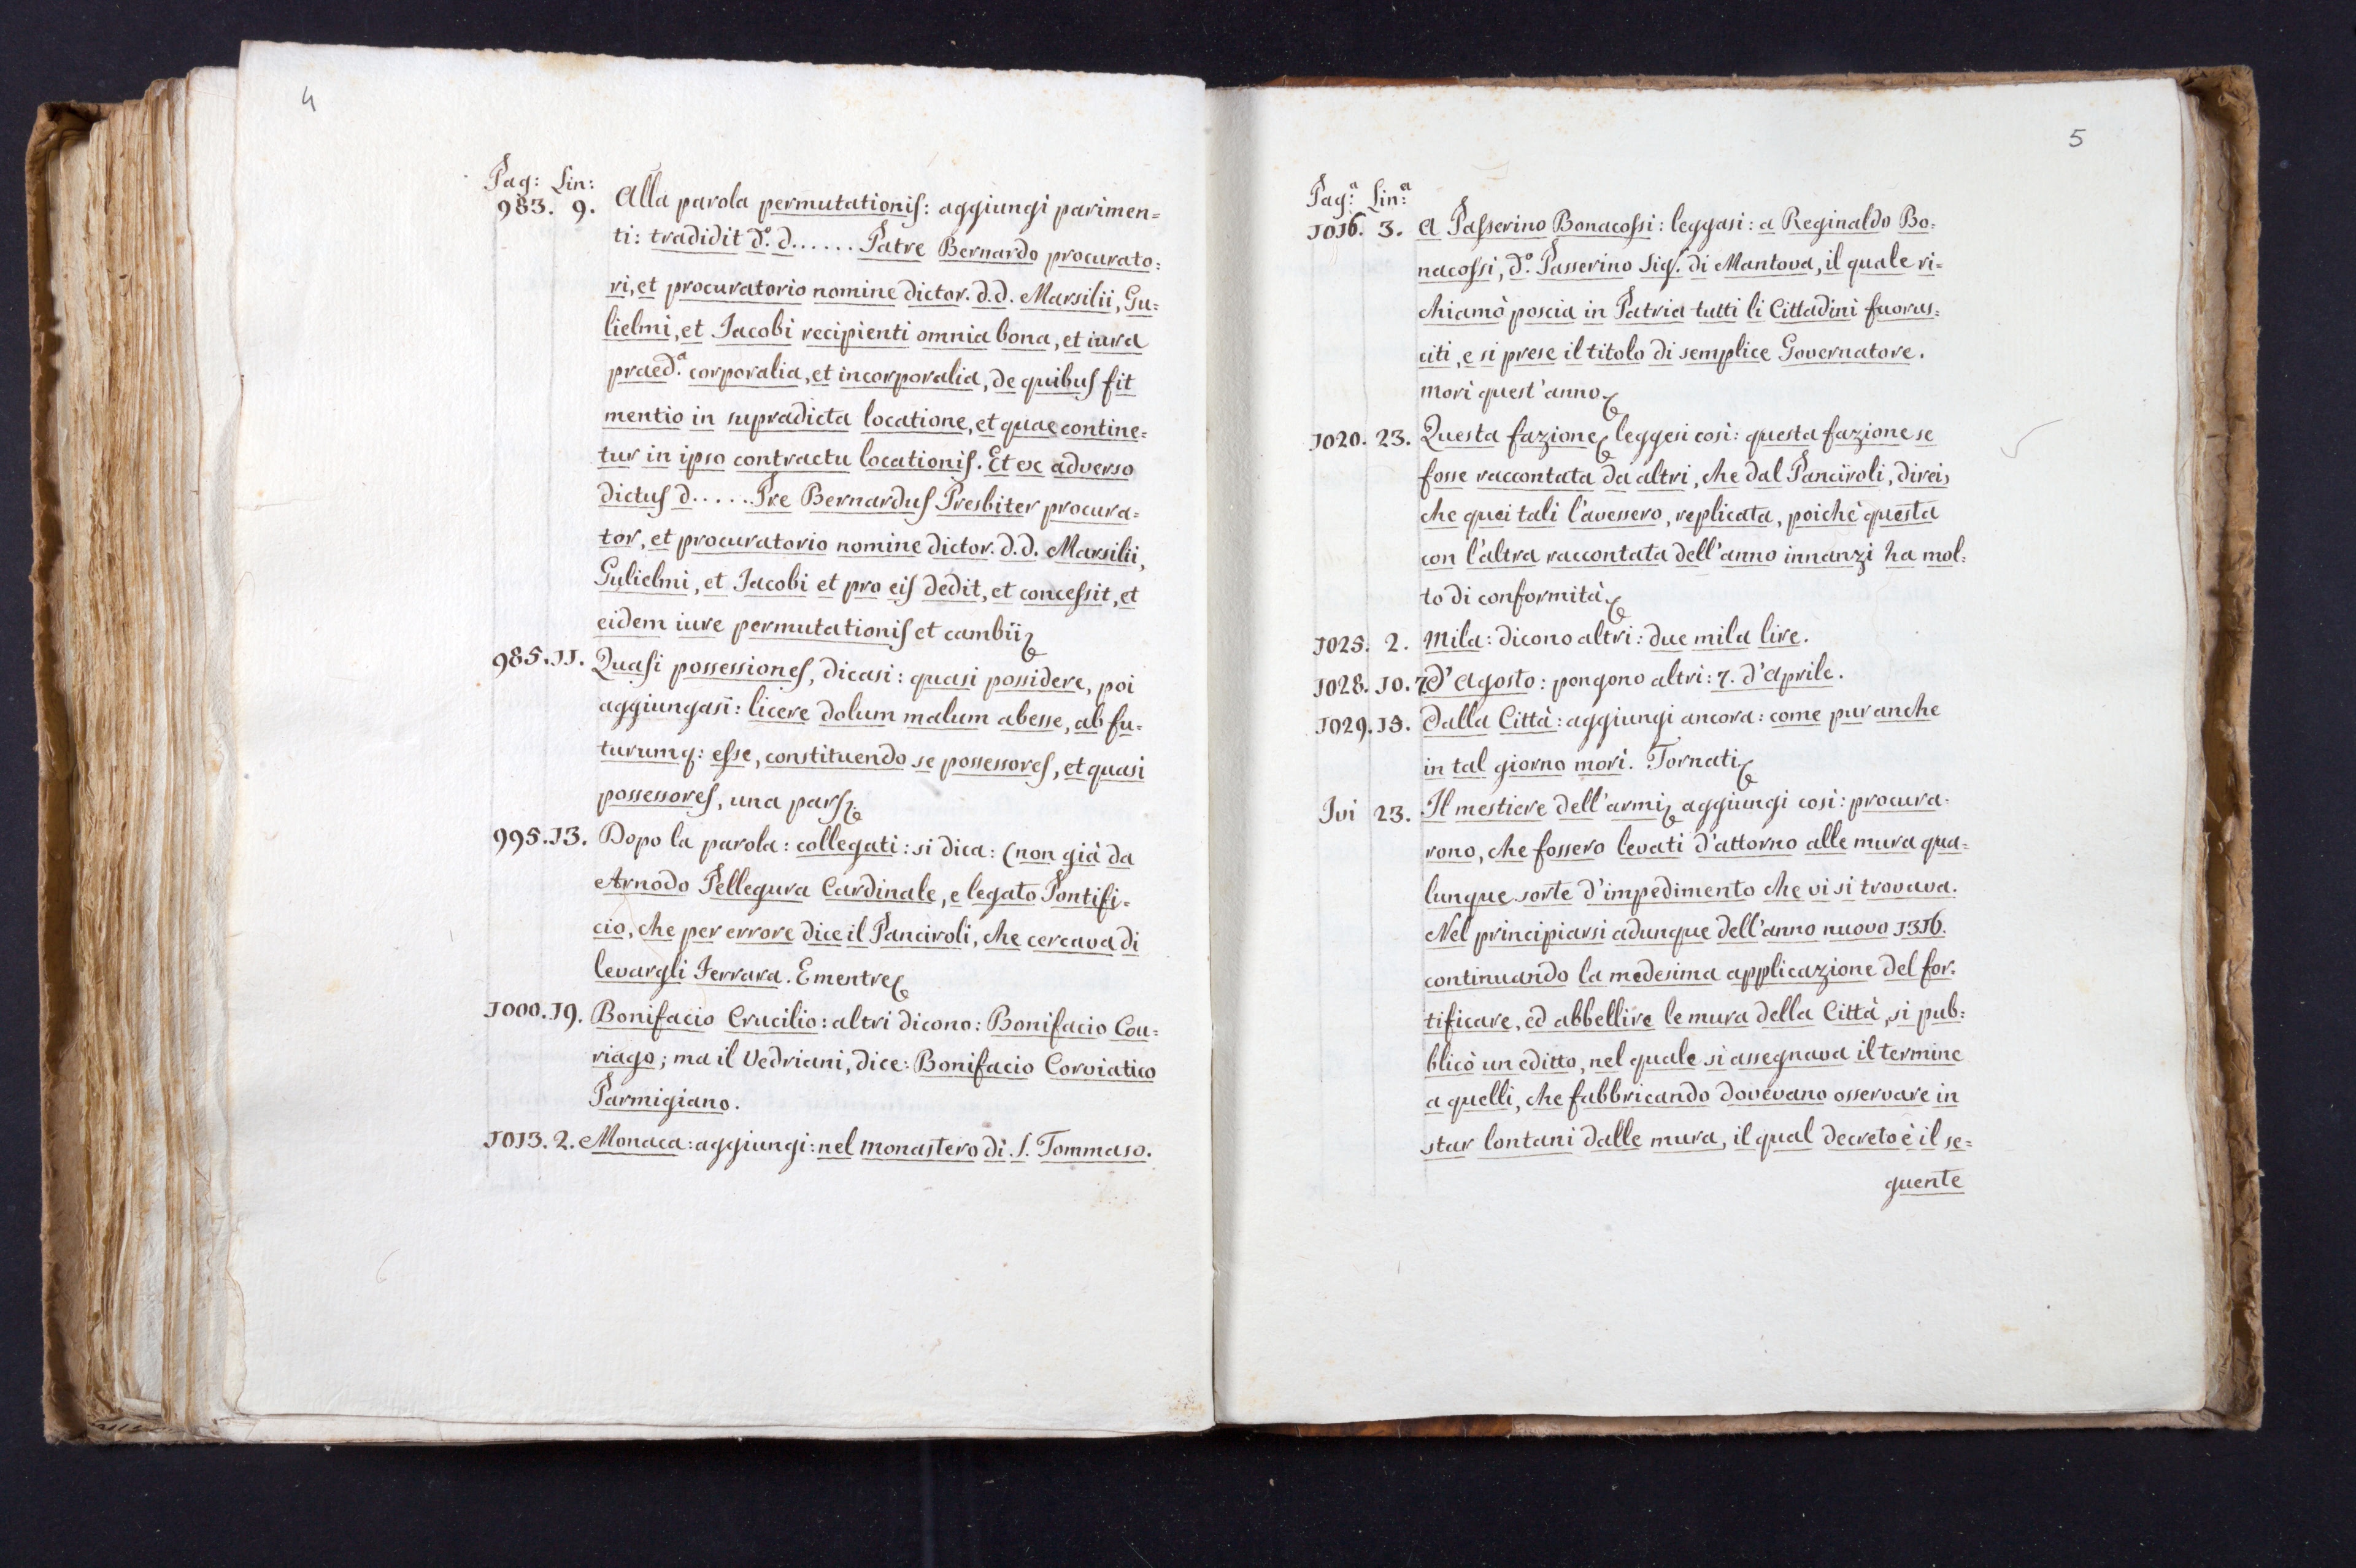 4
Pag: Lin:
983. 9. Alla parola permutationis: aggiungi parimen=
ti: tradidit d.º d...... Patre Bernardo procurato=
ri, et procuratorio nomine dictor. d.d. Marsilii, Gu=
lielmi, et Jacobi recipienti omnia bona, et iura
praed.ª corporalia, et incorporalia, de quibus fit
mentio in supradicta locatione, et quae contine=
tur in ipso contractu locationis. Et ex adverso
dictus d...... Pre Bernardus Presbiter procura=
tor, et procuratorio nomine dictor. d.d. Marsilii,
Gulielmi, et Jacobi et pro eis dedit, et concessit, et
eidem iure permutationis et cambii
985. 11. Quasi possessiones, dicasi: quasi possidere, poi
aggiungasi: licere dolum malum abesse, ab fu=
turumq: esse, constituendo se possessores, et quasi
possessores, una pars
995. 13. Dopo la parola: collegati: si dica: (non già da
Arnodo Pellegura Cardinale, e legato Pontifi=
cio, che per errore dice il Panciroli, che cercava di
levargli Ferrara. E mentre
1000. 19. Bonifacio Crucilio: altri dicono: Bonifacio Cou=
riago; ma il Vedriani, dice: Bonifacio Corviatico
Parmigiano.
1013. 2. Monaca: aggiungi: nel monastero di S. Tommaso.
5
Pag:ª Lin:ª
1016. 3. A Passerino Bonacossi: leggasi: a Reginaldo Bo=
nacossi, d.º Passerino Sig.r di Mantova, il quale ri=
chiamò poscia in Patria tutti li Cittadini fuorus=
citi, e si prese il titolo di semplice Governatore.
Morì quest'anno
1020. 23. Questa fazione leggesi così: questa fazione se
fosse raccontata da altri, che dal Panciroli, direi,
che quei tali l'avessero, replicata, poichè questa
con l'altra raccontata dell'anno innanzi ha mol=
to di conformità
1025. 2. Mila: dicono altri: due mila lire.
1028. 10. 7 d'Agosto: pongono altri: 7. d'Aprile.
1029. 15. Dalla Città: aggiungi ancora: come pur anche
in tal giorno morì. Tornati
Ivi 23. Il mestiere dell'armi aggiungi così: procura=
rono, che fossero levati d'attorno alle mura qua=
lunque sorte d'impedimento che vi si trovava.
Nel principiarsi adunque dell'anno nuovo 1316.
continuando la medesima applicazione del for=
tificare, ed abbellire le mura della Città, si pub=
blicò un editto, nel quale si assegnava il termine
a quelli, che fabbricando dovevano osservare in
star lontani dalle mura, il qual decreto è il se=
guente